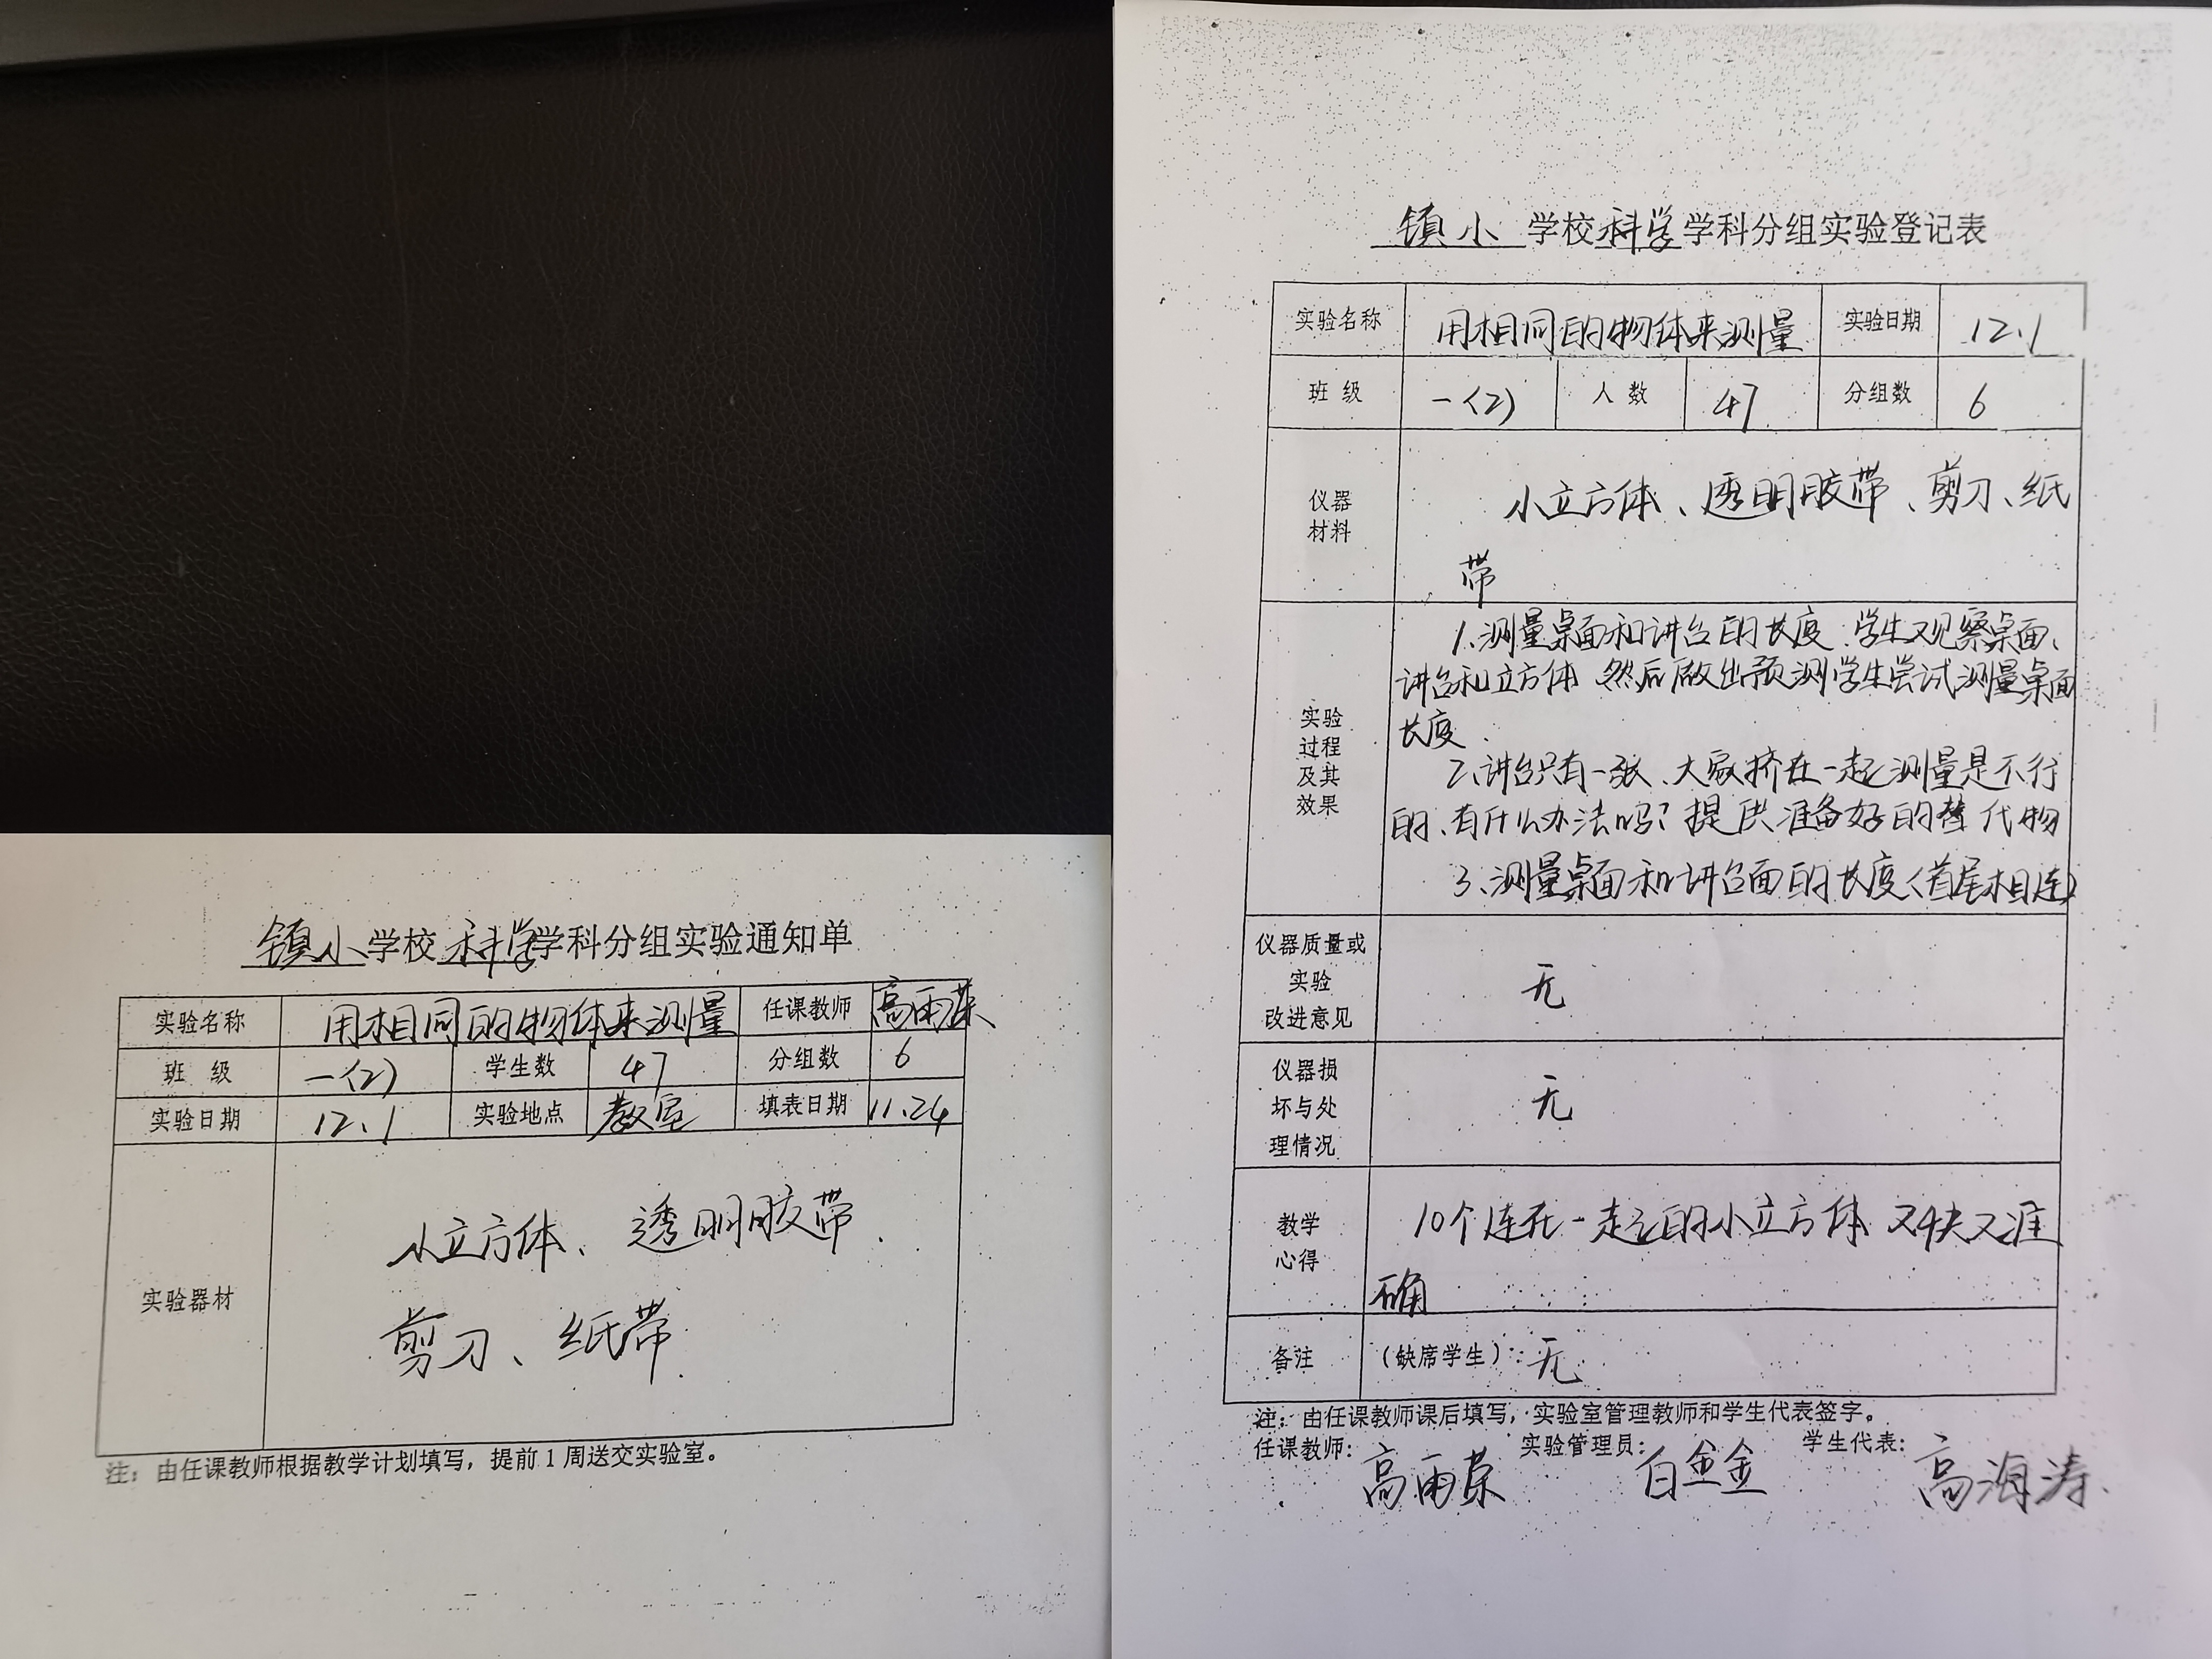 镇小学校科学学科分组实验通知单
实验名称 用相同的物体来测量 任课教师 高雨荣
班 级 一(2) 学生数 47 分组数 6
实验日期 12.1 实验地点 教室 填表日期 11.24
实验器材
小立方体、透明胶带、
剪刀、纸带.
注：由任课教师根据教学计划填写，提前1周送交实验室。
镇小 学校科学学科分组实验登记表
实验名称 用相同的物体来测量 实验日期 12.1
班 级 一(2) 人 数 47 分组数 6
仪器
材料
小立方体、透明胶带、剪刀、纸
带
实验
过程
及其
效果
1.测量桌面和讲台的长度.学生观察桌面、
讲台和立方体 然后做出预测学生尝试测量桌面
长度.
2、讲台只有一张、大家挤在一起测量是不行
的、有什么办法吗？提供准备好的替代物
3、测量桌面和讲台面的长度(首尾相连)
仪器质量或
实验
改进意见
无
仪器损
坏与处
理情况
无
教学
心得
10个连在一起的小立方体 又快又准
确
备注 (缺席学生)：无
注：由任课教师课后填写，实验室管理教师和学生代表签字。
任课教师: 高雨荣 实验管理员: 白金金 学生代表: 高海涛